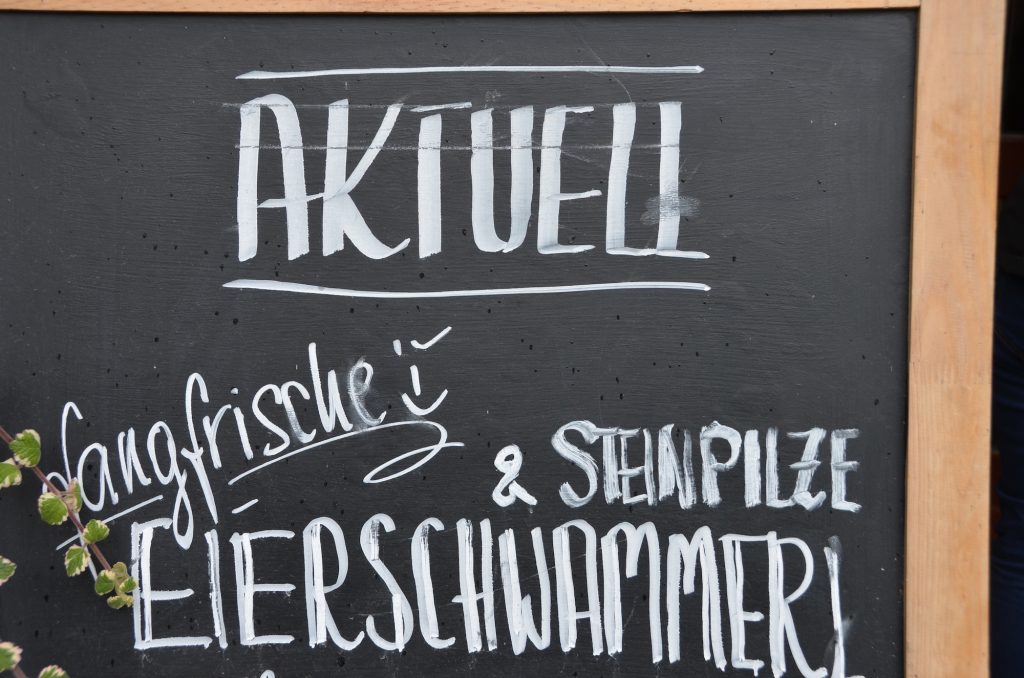 AKTUELL
fangfrische
& STEINPILZE
EIERSCHWAMMERL